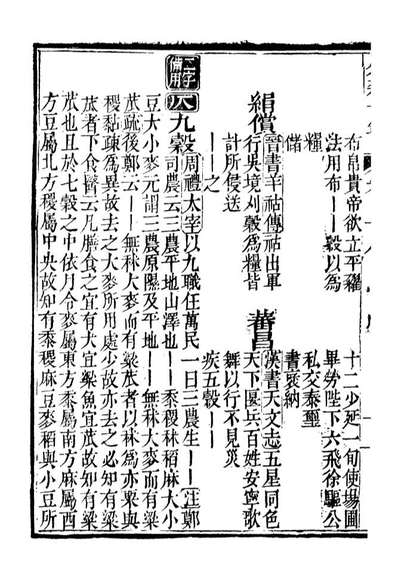 布帛貴帝欲立平糴
法用布——穀以為
糧
儲
十二少延一旬使場圃
畢勞陛下六飛徐驅公
私交泰璽
書裒納
絹償
晉書羊祜傳祜出軍
行吳境刈穀為糧皆
計所侵送
——之
蕃昌
漢書天文志五星同色
天下匽兵百姓安寧歌
舞以行不見災
疾五穀——
二字
備用
八
九穀
周禮大宰以九職任萬民一曰三農生——注鄭
司農云三農平地山澤也——黍稷秫稻麻大小
豆大小麥元謂三農原隰及平地——無秫大麥而有粱
苽疏後鄭云——無秫大麥而有粱苽者以秫為赤粟與
稷黏疎為異故去之大麥所用處少故亦去之必知有粱
苽者下食醫云凡膳食之宜有犬宜粱魚宜苽故知有粱
苽也且於七穀之中依月令麥屬東方黍屬南方麻屬西
方豆屬北方稷屬中央故知有黍稷麻豆麥稻與小豆所